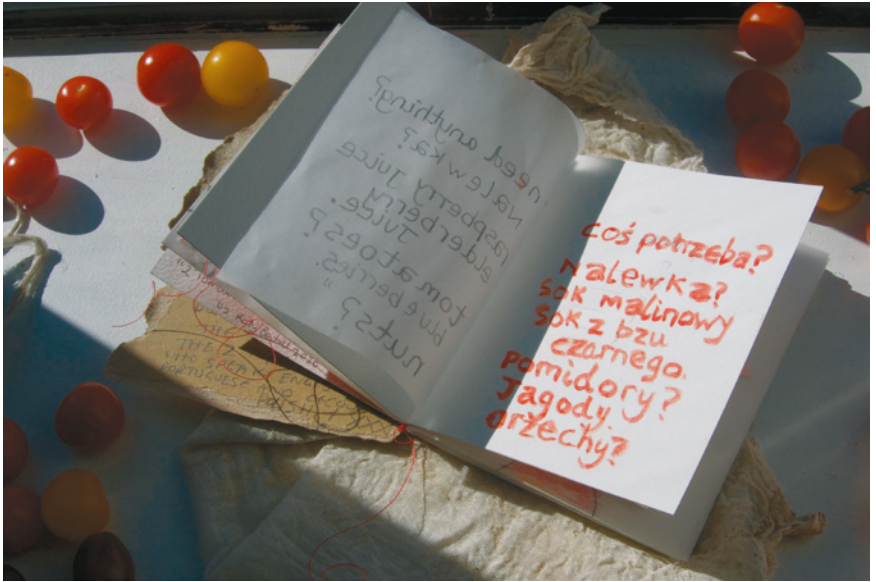 need anything?
Nalewka?
raspberry juice
elderberry
Juice.
tomatoes?
blueberries.
nuts?
coś potrzeba?
Nalewka?
sok malinowy
sok z bzu
czarnego.
pomidory?
Jagody.
orzechy?
THE
WHO SPEAKS
PORTUGUESE